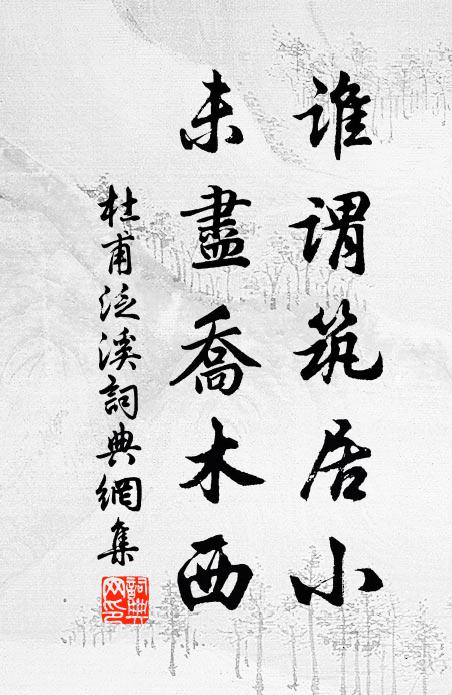 谁谓筑居小
未盡喬木西
杜甫泛溪詞典網集